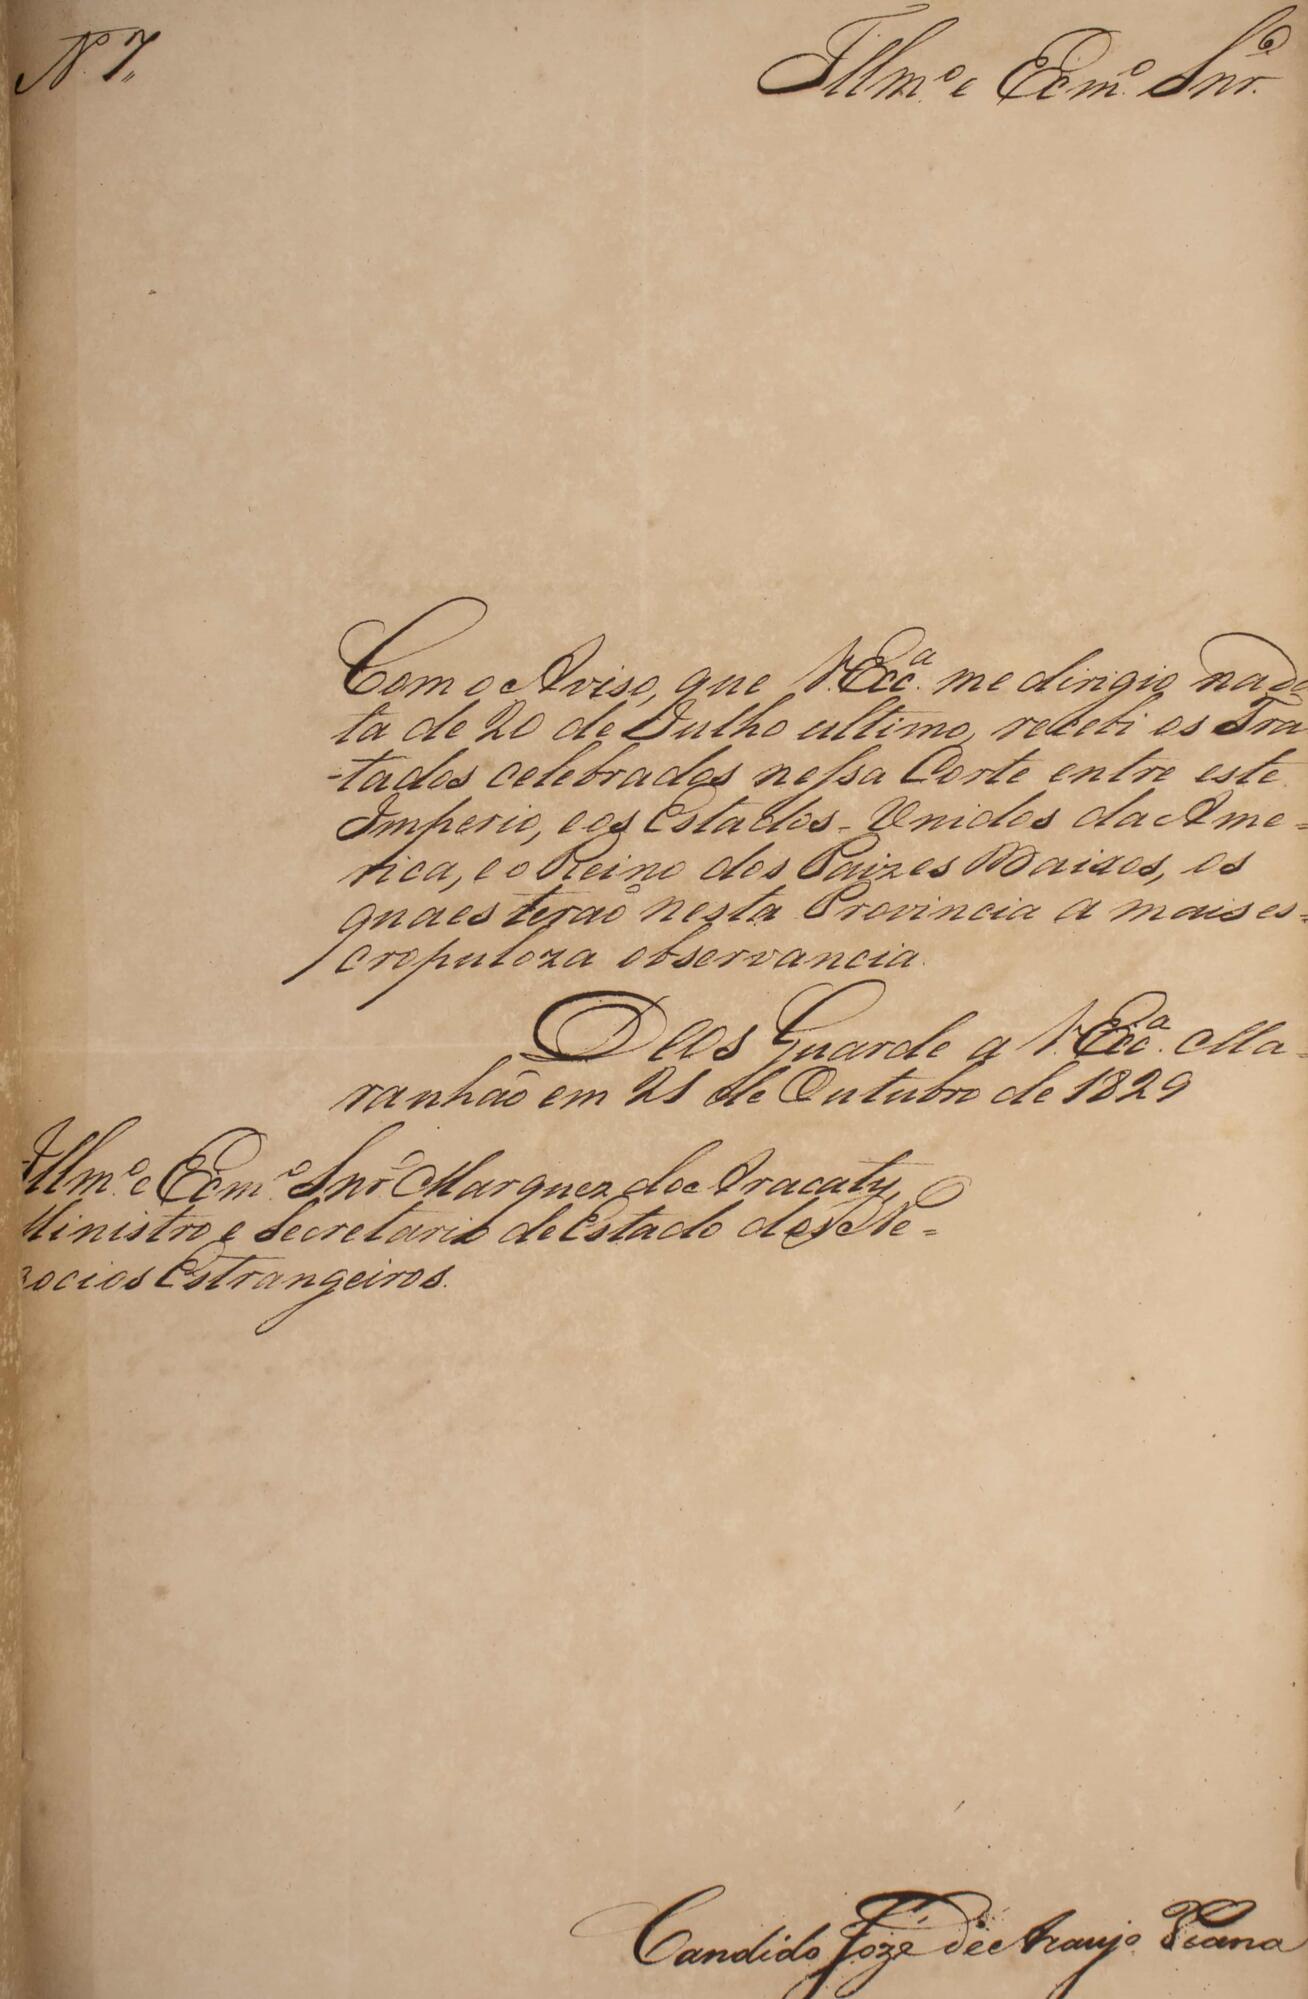 N.º 7,,
Illm.º e Ecm.º Snr.º
Com o Aviso, que V. Ecc.ª me dirigio na da
ta de 20 de Julho ultimo, recebi os Tra
-tados celebrados nessa Corte entre este
Imperio, e os Estados-Unidos da Ame=
rica, e o Reino dos Paizes Baixos, os
quaes teraõ nesta Provincia a mais es=
cropuloza observancia.
Deos Guarde a V. Ecc.ª Ma=
ranhão em 21 de Outubro de 1829
Illm.º e Ecm.º Snr.º Marquez do Aracaty,
Ministro e Secretario de Estado dos Ne=
gocios Estrangeiros.
Candido Jozé de Araujo Vianna